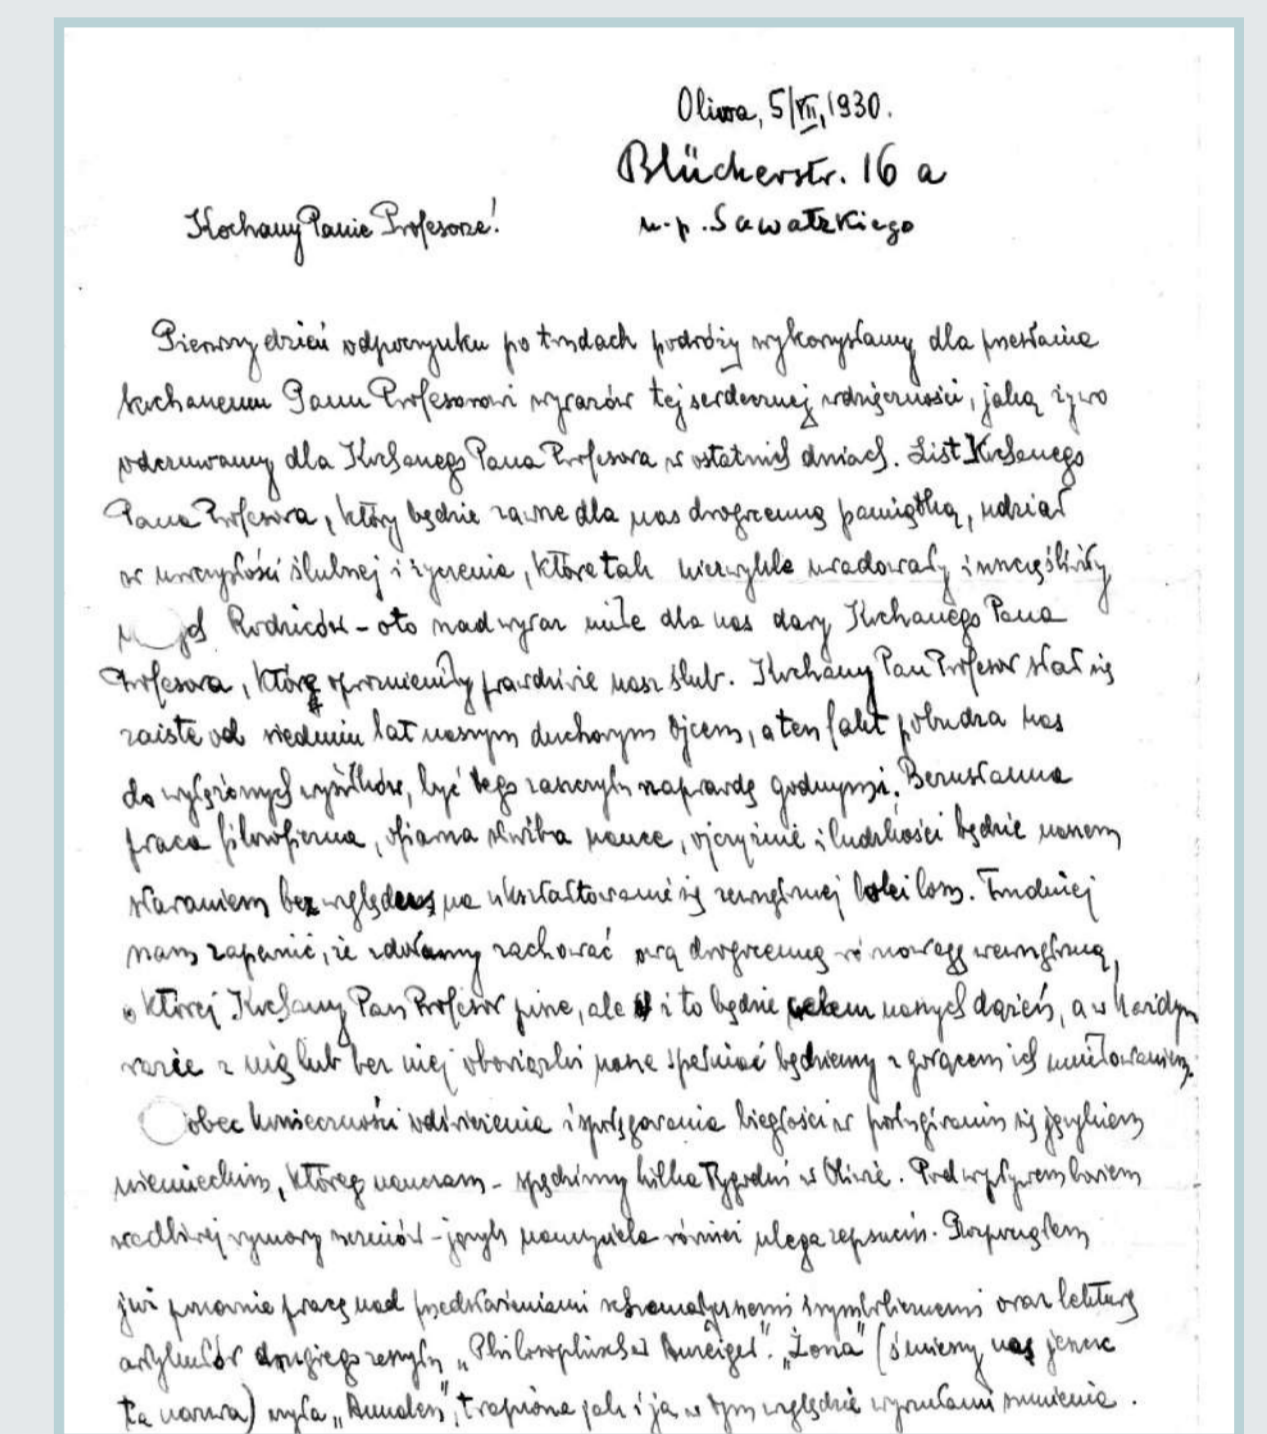 Oliwa, 5/VII, 1930.
Blücherstr. 16 a
u. p. Sawatzkiego
Kochany Panie Profesorze!
Pierwszy dzień odpoczynku po trudach podróży wykorzystamy dla przesłania
kochanemu Panu Profesorowi wyrazów tej serdecznej wdzięczności, jaką żywo
odczuwamy dla Kochanego Pana Profesora w ostatnich dniach. List Kochanego
Pana Profesora, który będzie zawsze dla nas drogocenną pamiątką, udział
w uroczystości ślubnej i życzenia, które tak niezwykle uradowały i uszczęśliwiły
Rodziców - oto nad wyraz miłe dla nas dary Kochanego Pana
Profesora, które opromieniły prawdziwie nasz ślub. Kochany Pan Profesor stał się
zaiste od siedmiu lat naszym duchowym Ojcem, a ten fakt pobudza nas
do wytężonych wysiłków, być tego zaszczytu naprawdę godnymi. Bezustanna
praca filozoficzna, ofiarna służba nauce, ojczyźnie i ludzkości będzie naszem
staraniem bez względu na ukształtowanie się zewnętrznej kolei losu. Trudniej
nam zapewnić, że zdołamy zachować ową drogocenną równowagę wewnętrzną,
o której Kochany Pan Profesor pisze, ale i to będzie celem naszych dążeń, a w każdym
razie z nią lub bez niej obowiązki nasze spełniać będziemy z gorącem ich umiłowaniem.
obec konieczności odświeżenia i spotęgowania biegłości w posługiwaniu się językiem
niemieckim, którego nauczam - spędzimy kilka tygodni w Oliwie. Pod wpływem bowiem
wadliwej wymowy uczniów - język nauczyciela również ulega zepsuciu. Rozpocząłem
już ponownie pracę nad przedstawieniami schematycznemi i symbolicznemi oraz lekturę
artykułów drugiego zeszytu „Philosophischer Anzeiger". „Żona" (śmieszy nas jeszcze
ta nazwa) czyta „Annalen", trapiona jak i ja w tym względzie wyrzutami sumienia.